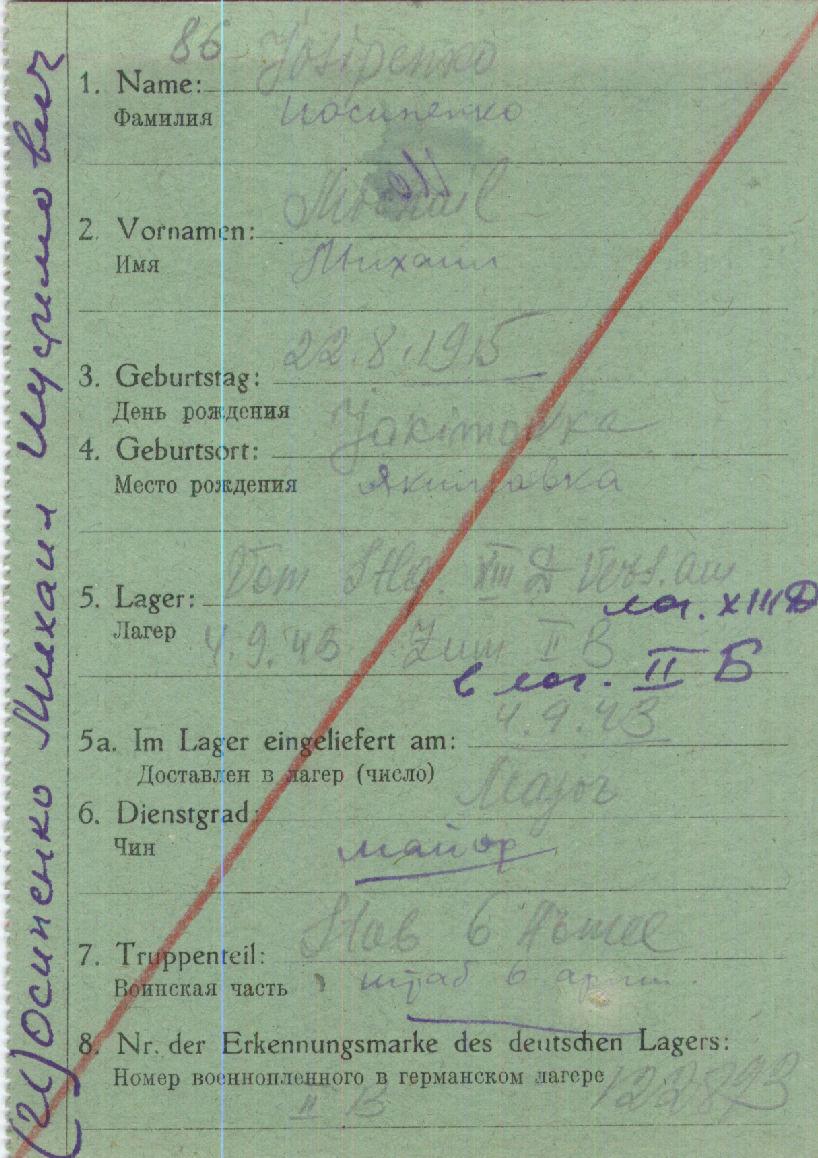 (И)Осипенко Михаил
86 Josipenko
1. Name:
Фамилия Иосипенко
Michail
2. Vornamen:
Имя Михаил
22.8.1915
3. Geburtstag:
День рождения
Jakimowka
4. Geburtsort:
Место рождения Якимовка
Vom Stlg. XIII D Vers. am
5. Lager:
лаг. XIII D
Лагер 4.9.43 Zum II B
в лаг. II Б
4.9.43
5a. Im Lager eingeliefert am:
Доставлен в лагер (число)
Major
6. Dienstgrad:
Чин майор
Stab 6 Armee
7. Truppenteil:
Воинская часть штаб 6 армии.
8. Nr. der Erkennungsmarke des deutschen Lagers:
Номер военнопленного в германском лагере
II B